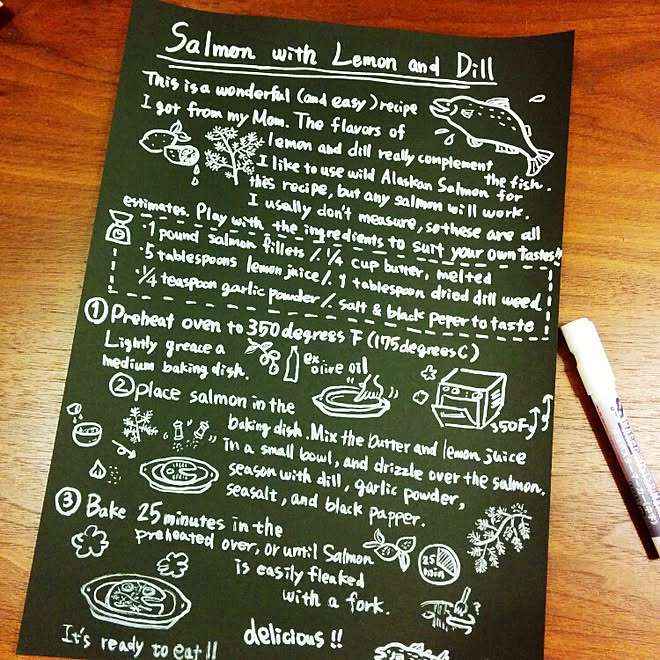 Salmon with Lemon and Dill
This is a wonderful (and easy) recipe
I got from my Mom. The flavors of
lemon and dill really complement
the fish.
I like to use wild Alaskan Salmon for
this recipe, but any salmon will work.
I usally don't measure, so these are all
estimates. Play with the ingredients to suit your own tastes!!
・1 pound salmon fillets /・1/4 cup butter, melted
・5 tablespoons lemon juice /・1 tablespoon dried dill weed
・1/4 teaspoon garlic powder /・salt & black peper to taste
① Preheat oven to 350 degrees F (175 degrees C)
Lightly greace a
medium baking dish.
ex.
olive oil
350F
② Place salmon in the
baking dish. Mix the butter and lemon juice
in a small bowl, and drizzle over the salmon.
season with dill, garlic powder,
seasalt, and black papper.
③ Bake 25 minutes in the
preheated over, or until Salmon
is easily fleaked
with a fork.
25
min
?
It's ready to eat!!
delicious!!